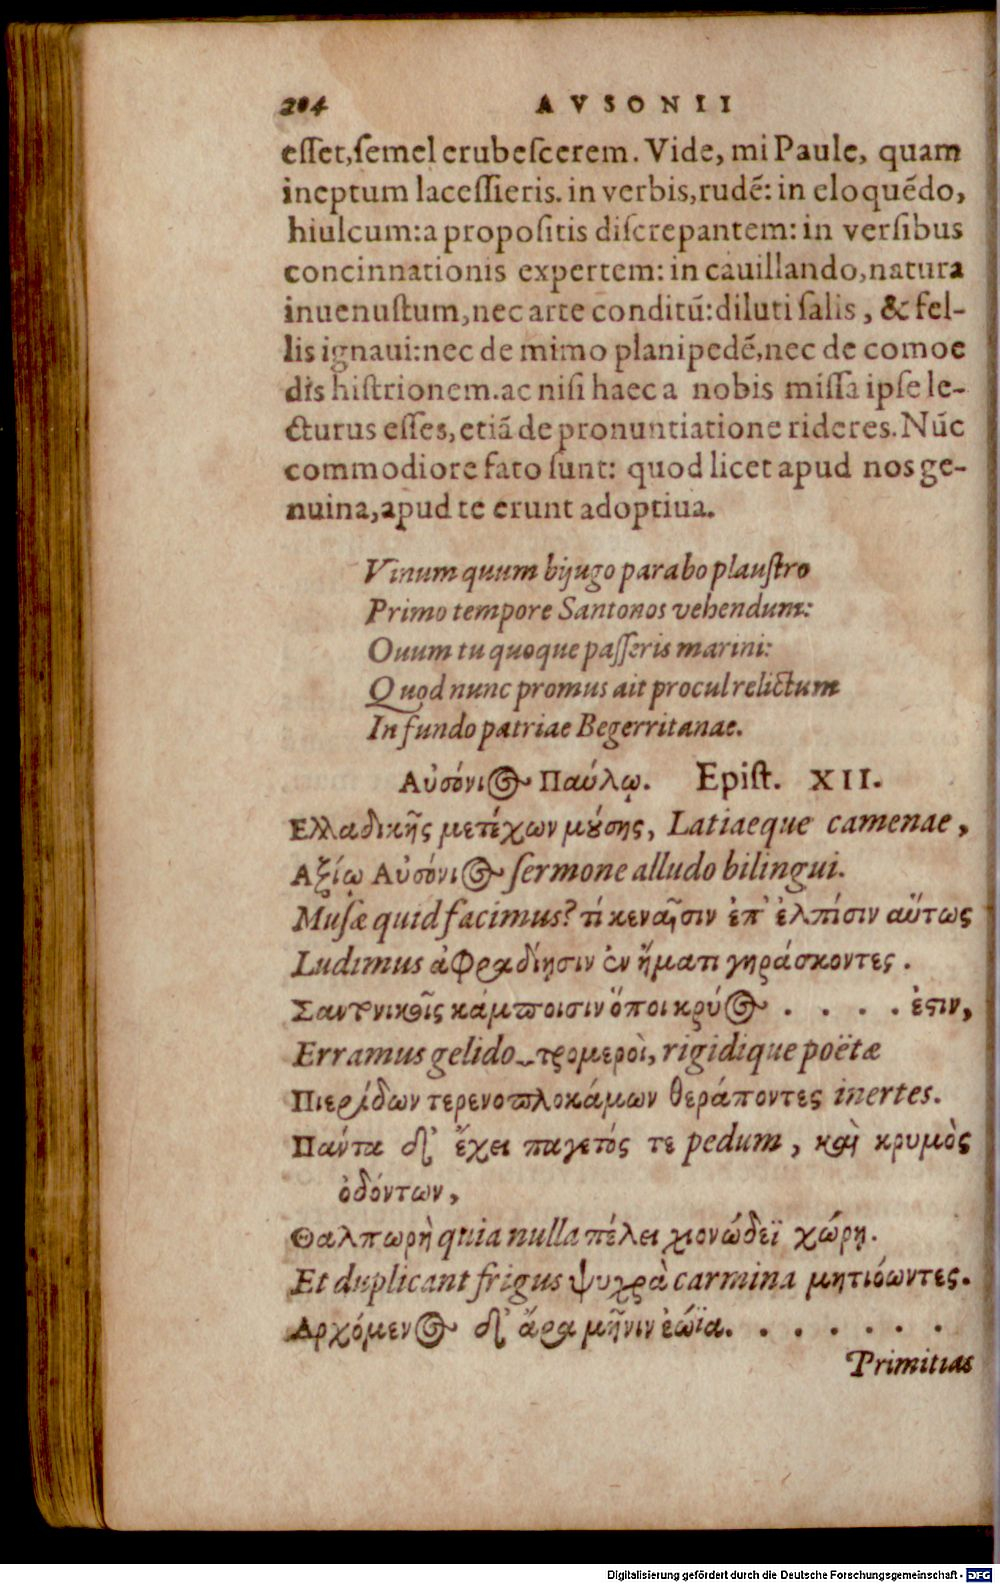 204 AVSONII
esset, semel erubescerem. Vide, mi Paule, quam
ineptum lacessieris. in verbis, rudẽ: in eloquẽdo,
hiulcum: a propositis discrepantem: in versibus
concinnationis expertem: in cauillando, natura
inuenustum, nec arte conditũ: diluti salis, & fel-
lis ignaui: nec de mimo planipedẽ, nec de comoe
dis histrionem. ac nisi haec a nobis missa ipse le-
cturus esses, etiã de pronuntiatione rideres. Nũc
commodiore fato sunt: quod licet apud nos ge-
nuina, apud te erunt adoptiua.
Vinum quum bijugo parabo plaustro
Primo tempore Santonos vehendum:
Ouum tu quoque passeris marini:
Quod nunc promus ait procul relictum
In fundo patriae Begerritanae.
Αὐσόνιος Παύλῳ. Epist. XII.
Ελλαδικῆς μετέχων μούσης, Latiaeque camenae,
Αξίῳ Αὐσόνιος sermone alludo bilingui.
Musæ quid facimus? τί κεναῆσιν ἐπ' ἐλπίσιν αὔτως
Ludimus ἀφραδίησιν ἐν ἤματι γηράσκοντες.
Σαντονικοῖς κάμποισιν ὅποι κρύος . . . . ἐστιν,
Erramus gelido_τρομεροὶ, rigidique poëtæ
Πιερίδων τερενοπλοκάμων θεράποντες inertes.
Πάντα δ' ἔχει παγετός τε pedum, καὶ κρυμὸς
ὀδόντων,
Θαλπωρὴ quia nulla πέλει χιονώδεϊ χώρῃ.
Et duplicant frigus ψυχρὰ carmina μητιόωντες.
Αρχόμενος δ' ἄρα μῆνιν ἐώϊα. . . . . . .
Primitias
Digitalisierung gefördert durch die Deutsche Forschungsgemeinschaft - DFG